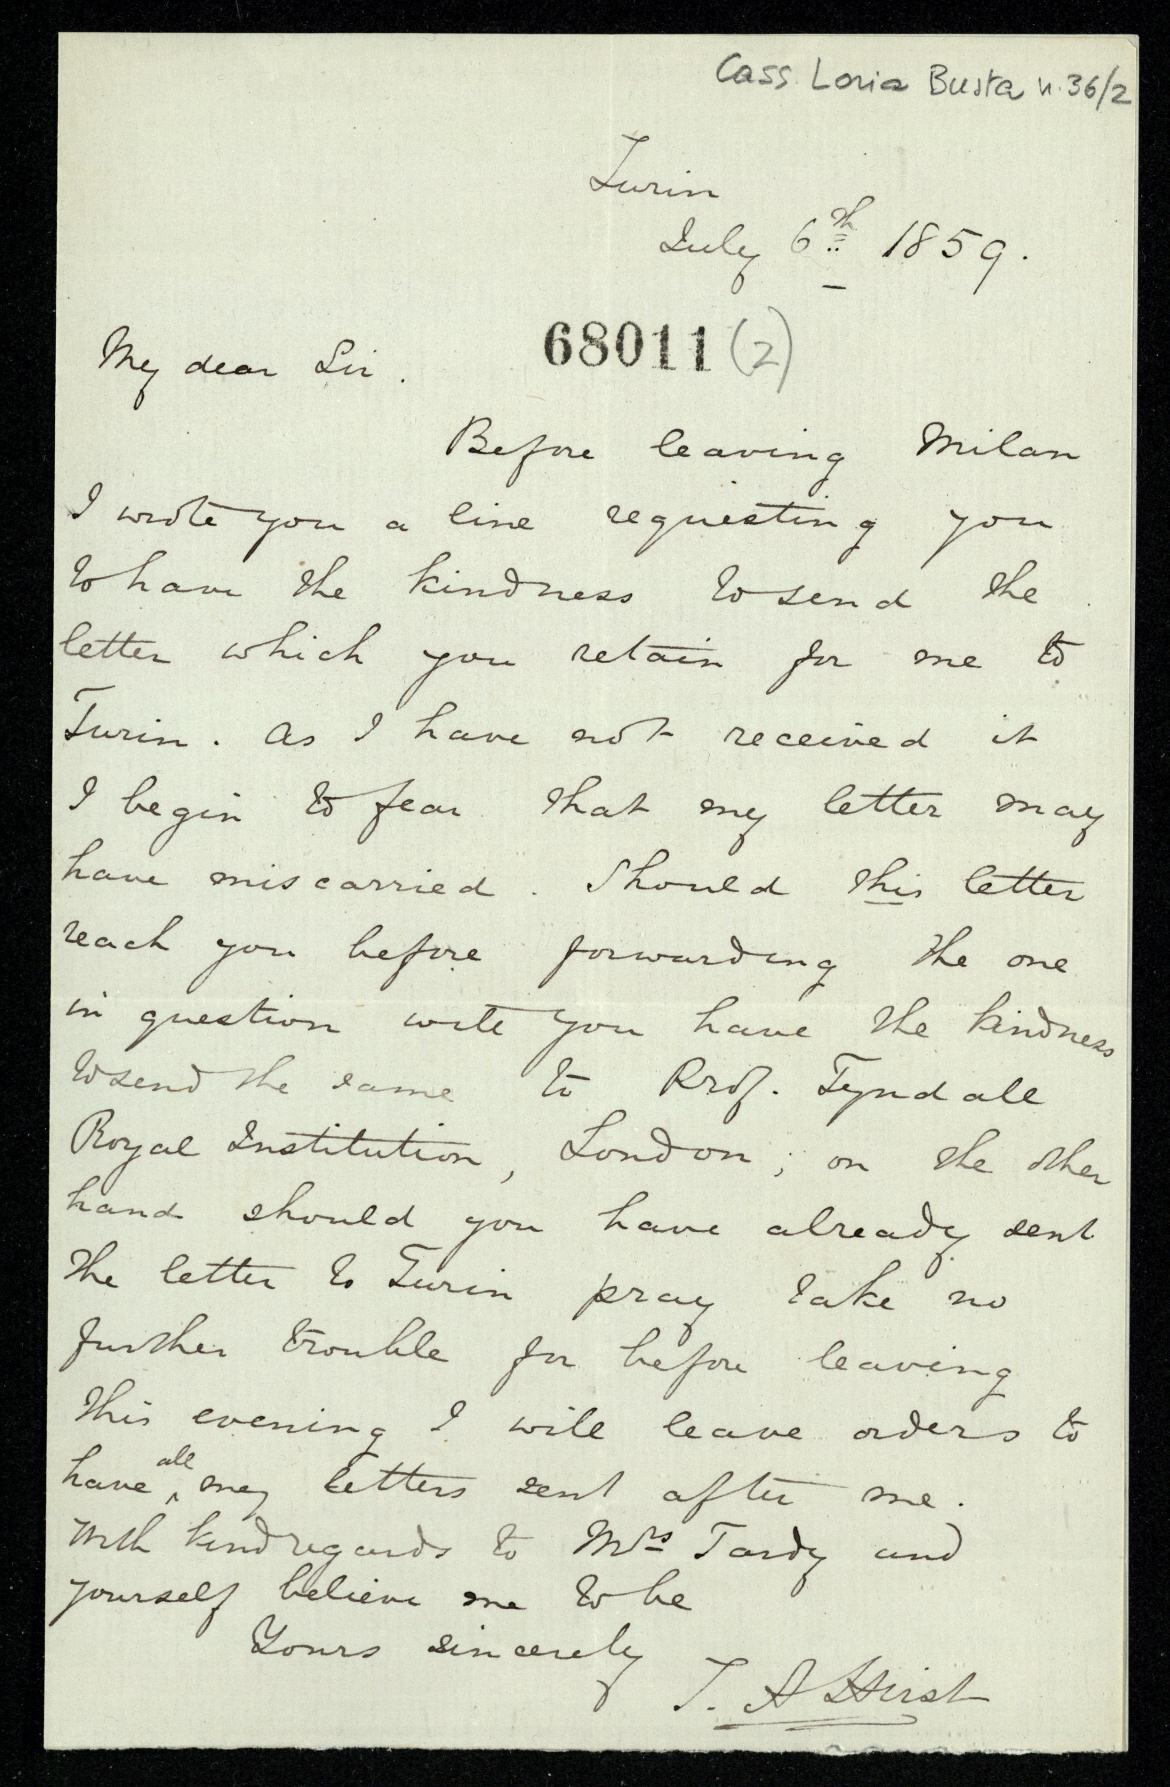 Cass Loria Busta n. 36/2
Turin
July 6th 1859.
68011 (2)
My dear Sir.
Before leaving Milan
I wrote you a line requesting you
to have the kindness to send the
letter which you retain for me to
Turin. As I have not received it
I begin to fear that my letter may
have miscarried. Should this letter
reach you before forwarding the one
in question will you have the kindness
to send the same to Prof. Tyndall
Royal Institution, London; on the other
hand should you have already sent
the letter to Turin pray take no
further trouble for before leaving
this evening I will leave orders to
have all my letters sent after me.
With kind regards to Mrs Tardy and
yourself believe me to be
Yours sincerely
T. A Hirst